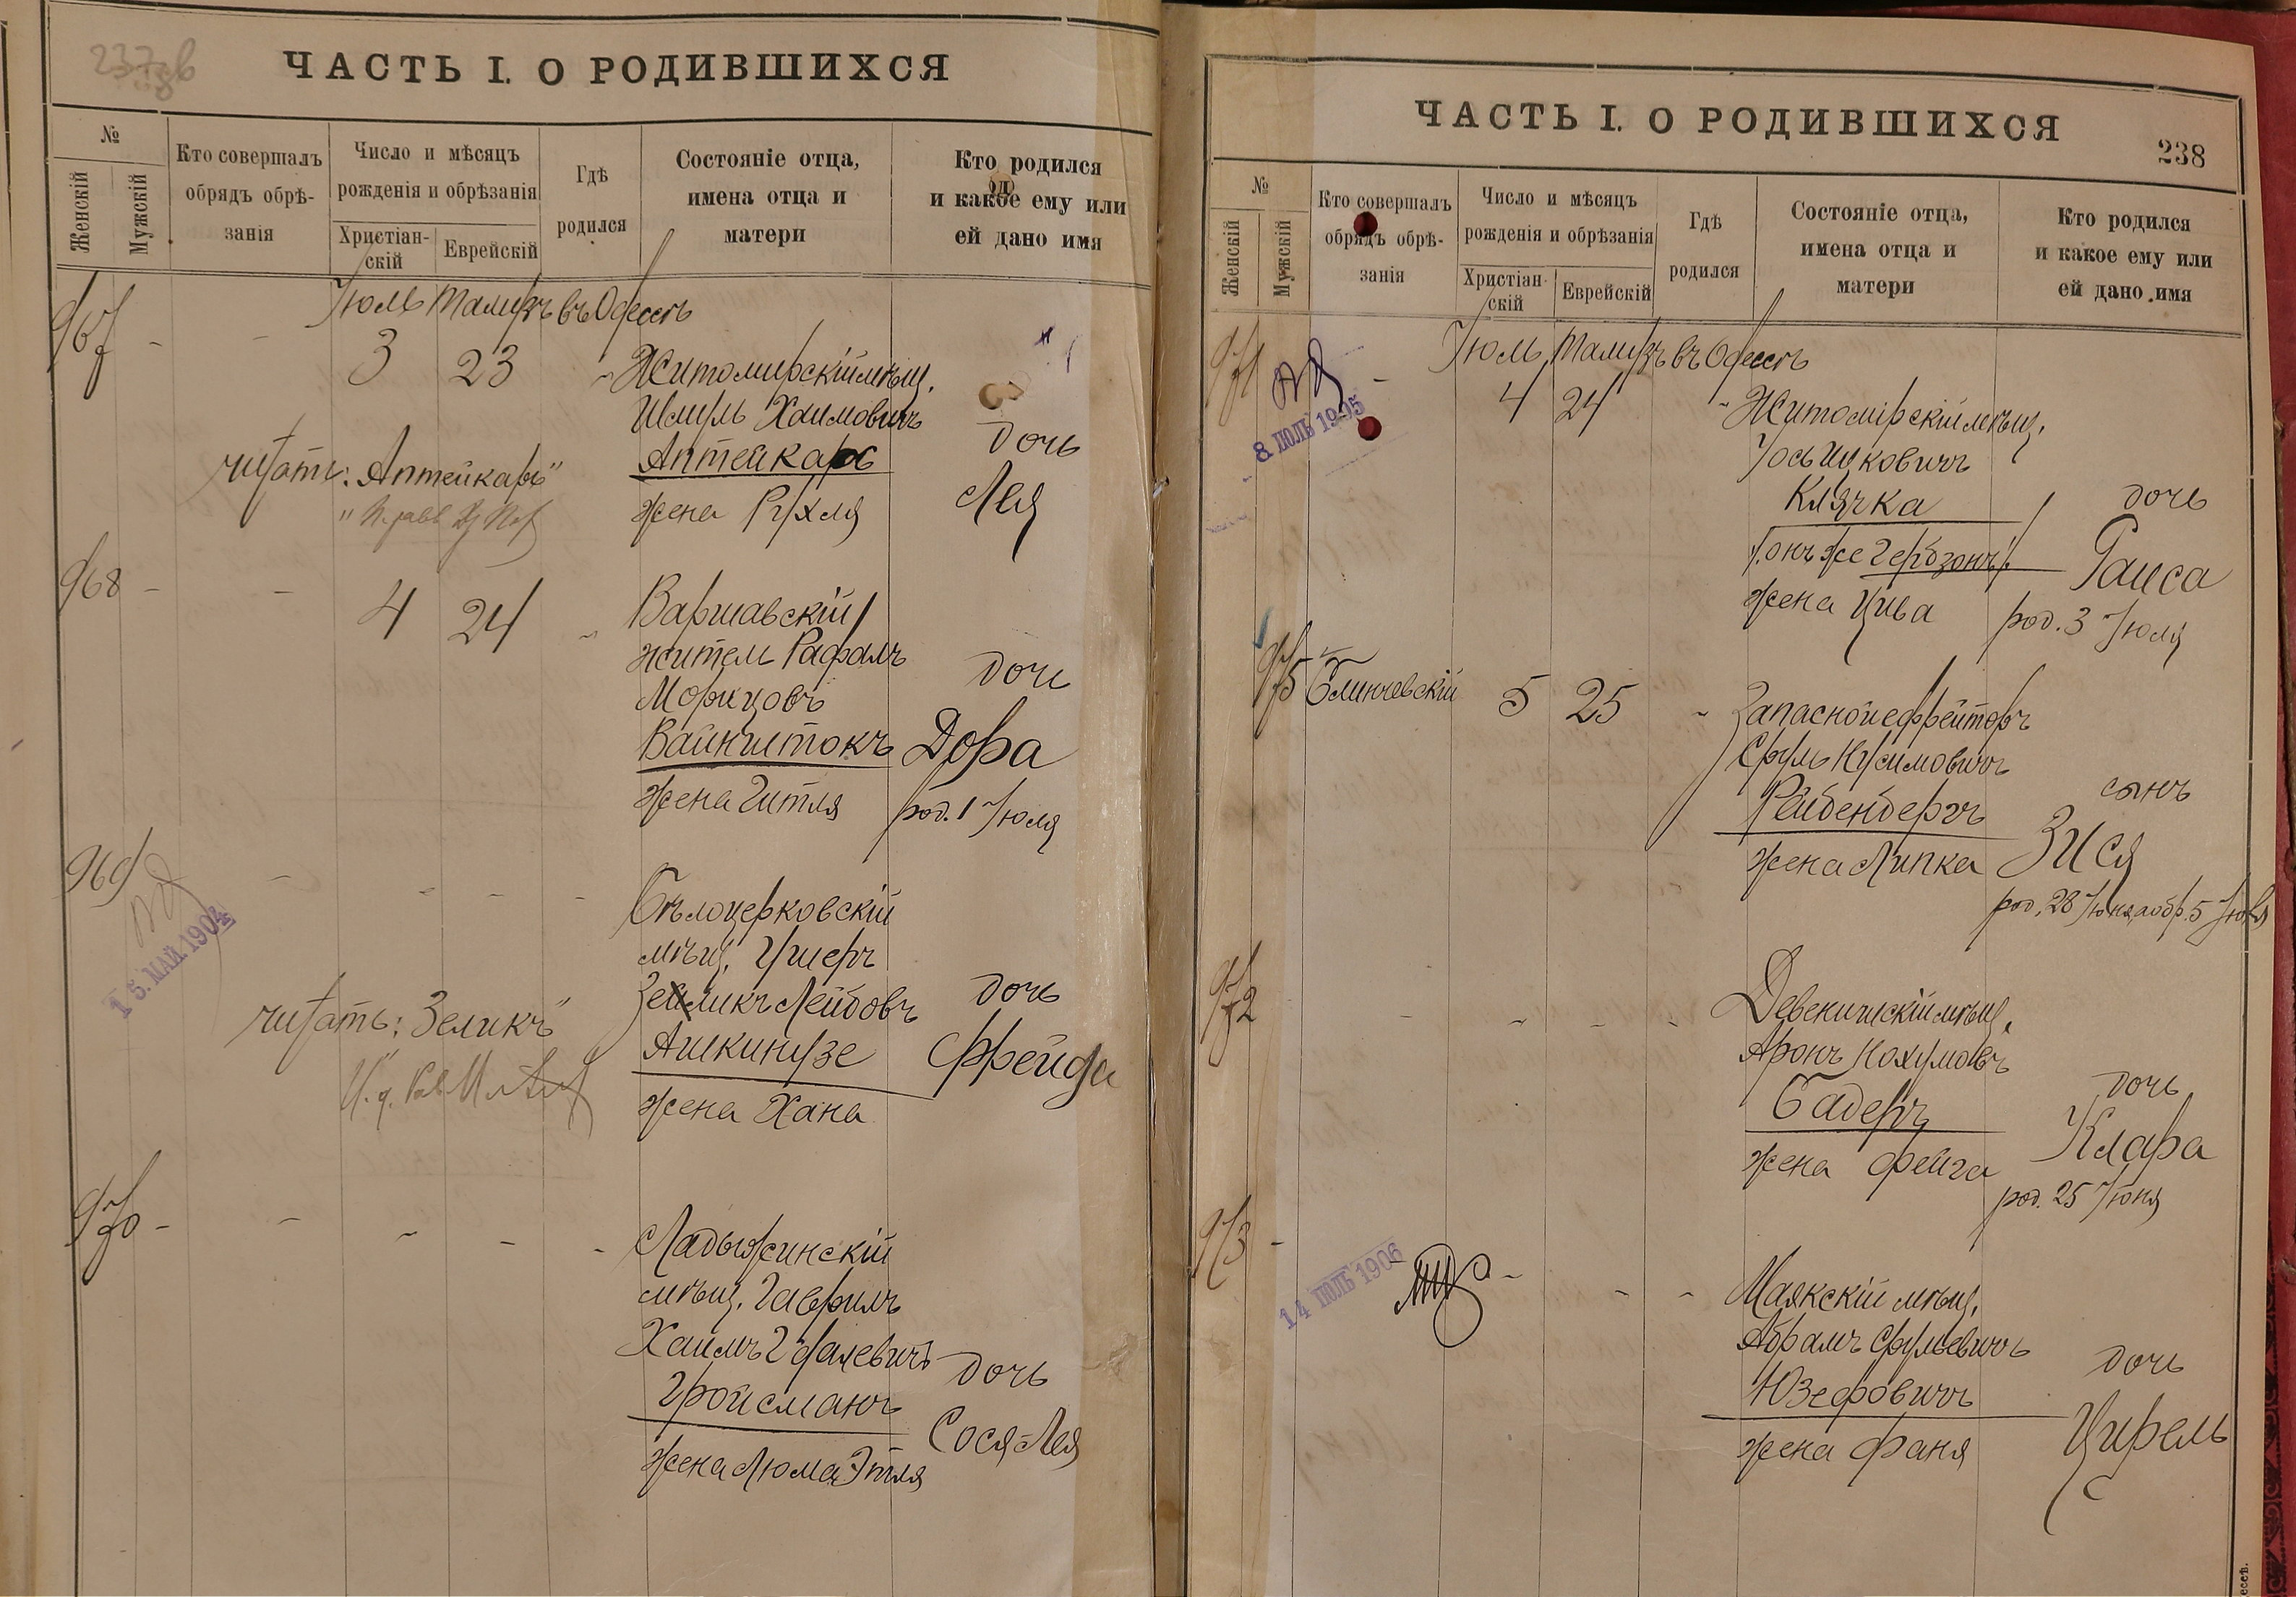 237 об
ЧАСТЬ I. О РОДИВШИХСЯ
№
Женскій
Мужскій
Кто совершалъ
обрядъ обрѣ-
занія
Число и мѣсяцъ
рожденія и обрѣзанія
Христіан-
скій
Еврейскій
Гдѣ
родился
Состояніе отца,
имена отца и
матери
Кто родился
и какое ему или
ей дано имя
Іюль Тамузъ въ Одессѣ
967 - - 3 23 - Житомирскій мѣщ.
Шмуль Хаимовичъ
Аптейкарь
дочь
читать: Аптейкарь"
жена Рухля
Лея
968 - - 4 24 - Варшавскій
житель Рафалъ
Морицовъ
дочь
Вайнштокъ
Дора
жена Гитля
род. 1 Іюля
969 - - - - Бѣлоцерковскій
15. МАЙ 1904
мѣщ. Ушеръ
Зейликъ Лейбовъ
дочь
читать: Зеликъ"
Ашкинузе
Фрейда
жена Хана
970 - - - - - Ладыжинскій
мѣщ. Гаврилъ
Хаимъ Сфалевичъ
дочь
Гройсманъ
Сося Лея
жена Люма Этля
ЧАСТЬ I. О РОДИВШИХСЯ
238
№
Женскій
Мужскій
Кто совершалъ
обрядъ обрѣ-
занія
Число и мѣсяцъ
рожденія и обрѣзанія
Христіан-
скій
Еврейскій
Гдѣ
родился
Состояніе отца,
имена отца и
матери
Кто родился
и какое ему или
ей дано имя
Іюль Тамузъ въ Одессѣ
971 - 4 24 - Житомірскій мѣщ.
8 ІЮЛЬ 1905
Іось Ицковичъ
Клячка
дочь
/онъ же Гербзонъ/
Раиса
жена Цива
род. 3 Іюля
975 Блинчевскій 5 25 - Запасной ефрейторъ
Сруль Нусимовичъ
сынъ
Рейденбергъ
Зися
жена Липка
род. 28 Іюня, а обр. 5 Іюля
972 - - - - Девенишскій мѣщ.
Аронъ Нохумовъ
дочь
Бадеръ
Клара
жена Фейга
род. 25 Іюня
973 - - - - Маякскій мѣщ.
14 ІЮЛЬ 1906
Абрамъ Срульевичъ
дочь
Юзефовичъ
Цирель
жена Фаня